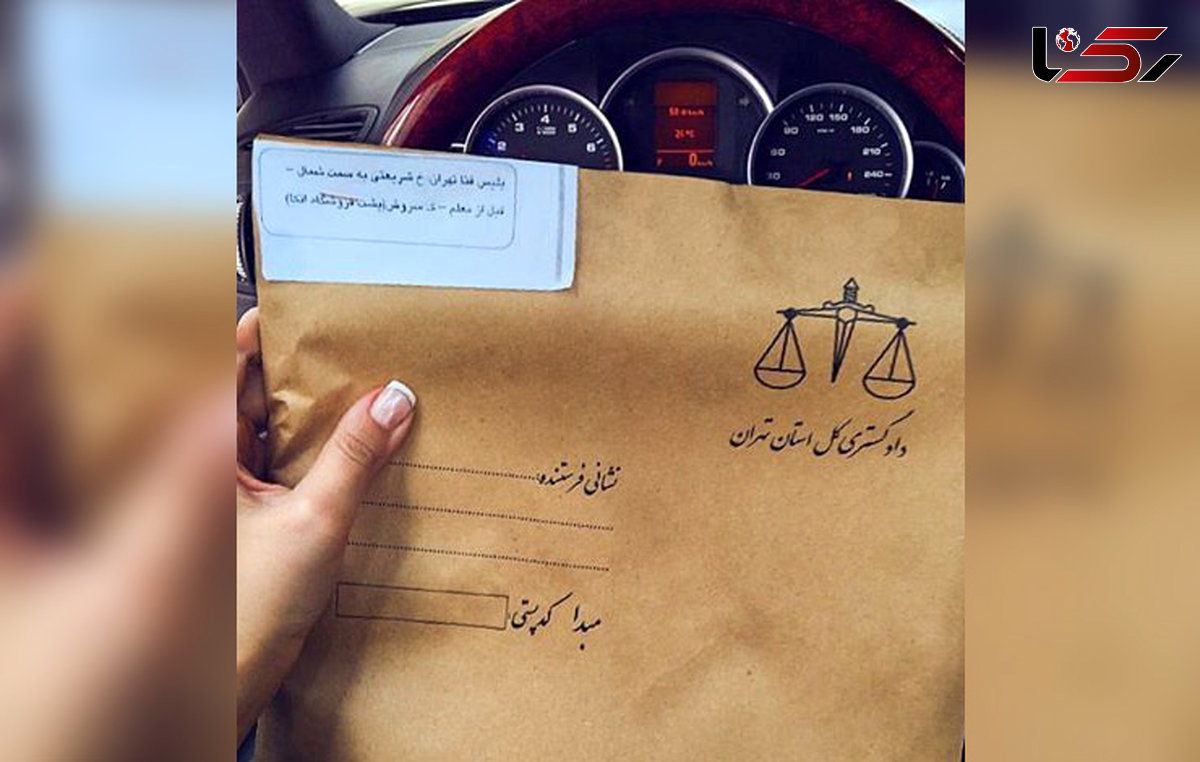 رکنا
3 4 5 6
2
26°C
0 km/h
90 120 150 180
60 210
30 240
پلیس فتا تهران: خ شریعتی به سمت شمال –
قبل از معلم – خ سروش (پشت فروشگاه اتکا)
دادگستری کل استان تهران
نشانی فرستنده:
مبدا کدپستی: